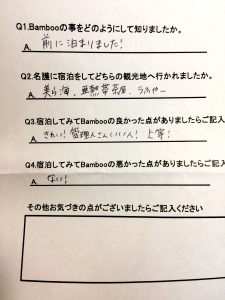 Q1.Bambooの事をどのようにして知りましたか。
A. 前に泊まりました!
Q2.名護に宿泊をしてどちらの観光地へ行かれましたか。
A. 美ら海、亜熱帯茶屋、
Q3.宿泊してみてBambooの良かった点がありましたらご記入
A. きれい!管理人さんいい人!上等!
Q4.宿泊してみてBambooの悪かった点がありましたらご記入
A. ない!
その他お気づきの点がございましたらご記入ください